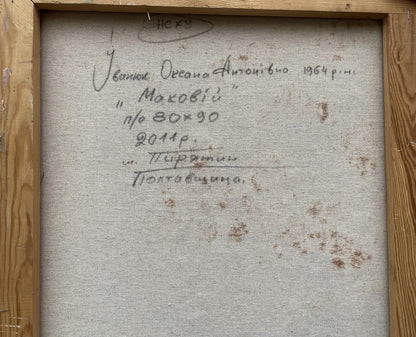 НСХУ
Іванюк Оксана Антонівна 1964 р.н.
"Маковій"
п/о 80×90
2011р.
м. Пирятин
Полтавщина.